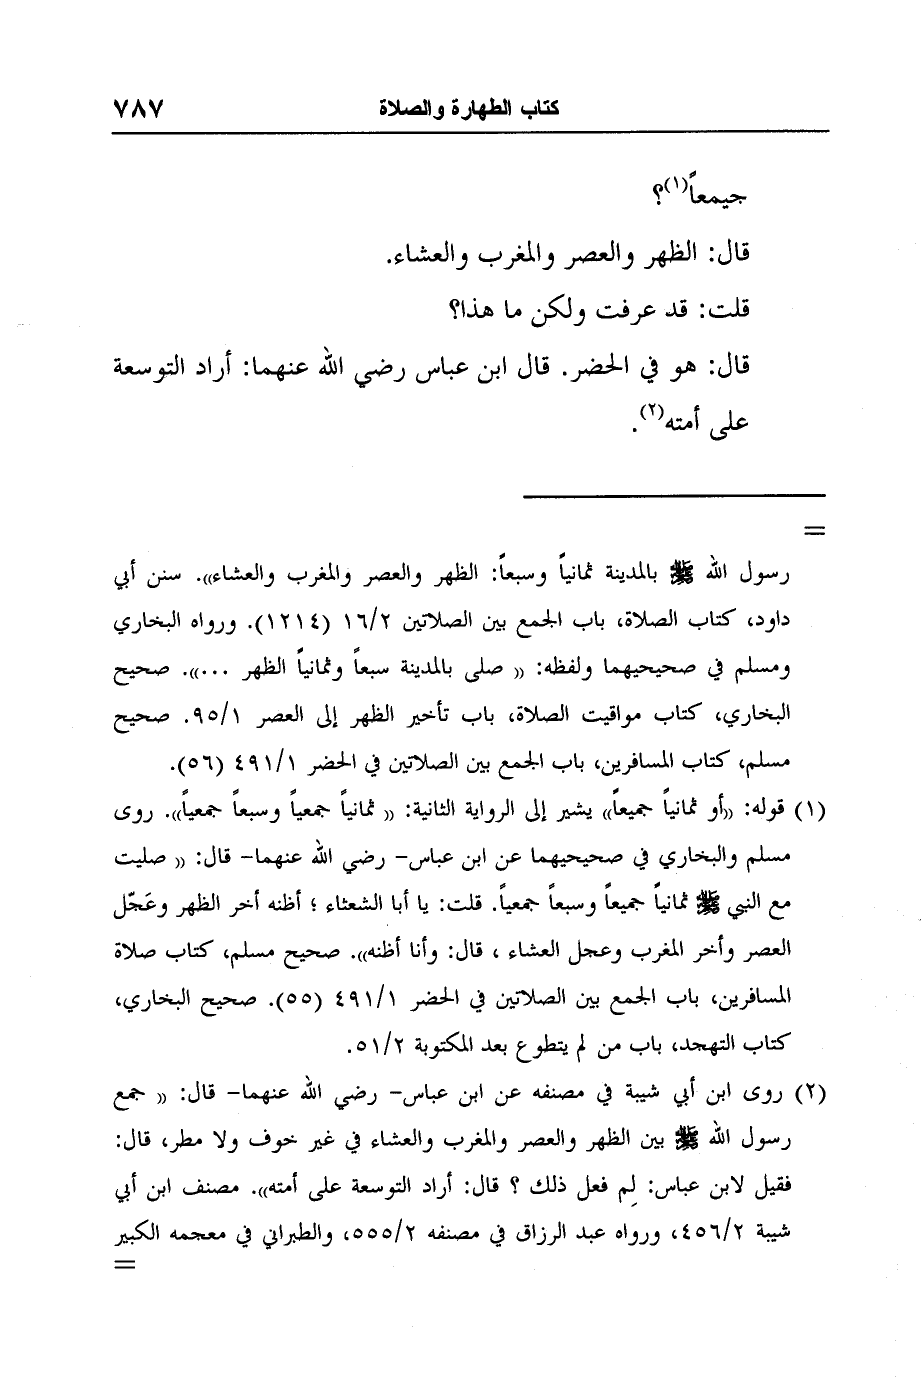 كتاب الطهارة والصلاة ٧٨٧
جيمعاً(١)؟
قال: الظهر والعصر والمغرب والعشاء.
قلت: قد عرفت ولكن ما هذا؟
قال: هو في الحضر. قال ابن عباس رضي الله عنهما: أراد التوسعة
على أمته(٢).
=
رسول الله ﷺ بالمدينة ثمانياً وسبعاً: الظهر والعصر والمغرب والعشاء)). سنن أبي
داود، كتاب الصلاة، باب الجمع بين الصلاتين ١٦/٢ (١٢١٤). ورواه البخاري
ومسلم في صحيحيهما ولفظه: (( صلى بالمدينة سبعاً وثمانياً الظهر ...)). صحيح
البخاري، كتاب مواقيت الصلاة، باب تأخير الظهر إلى العصر ٩٥/١. صحيح
مسلم، كتاب المسافرين، باب الجمع بين الصلاتين في الحضر ٤٩١/١ (٥٦).
(١) قوله: ((أو ثمانياً جميعاً)) يشير إلى الرواية الثانية: (( ثمانياً جمعياً وسبعاً جمعياً)). روى
مسلم والبخاري في صحيحيهما عن ابن عباس- رضي الله عنهما- قال: (( صليت
مع النبي ﷺ ثمانياً جميعاً وسبعاً جمعياً. قلت: يا أبا الشعثاء ؛ أظنه أخر الظهر وعَجّل
العصر وأخر المغرب وعجل العشاء ، قال: وأنا أظنه)). صحيح مسلم، كتاب صلاة
المسافرين، باب الجمع بين الصلاتين في الحضر ٤٩١/١ (٥٥). صحيح البخاري،
كتاب التهجد، باب من لم يتطوع بعد المكتوبة ٥١/٢.
(٢) روى ابن أبي شيبة في مصنفه عن ابن عباس- رضي الله عنهما- قال: (( جمع
رسول الله ﷺ بين الظهر والعصر والمغرب والعشاء في غير خوف ولا مطر، قال:
فقيل لابن عباس: لِم فعل ذلك ؟ قال: أراد التوسعة على أمته)). مصنف ابن أبي
شيبة ٤٥٦/٢، ورواه عبد الرزاق في مصنفه ٥٥٥/٢، والطبراني في معجمه الكبير
=